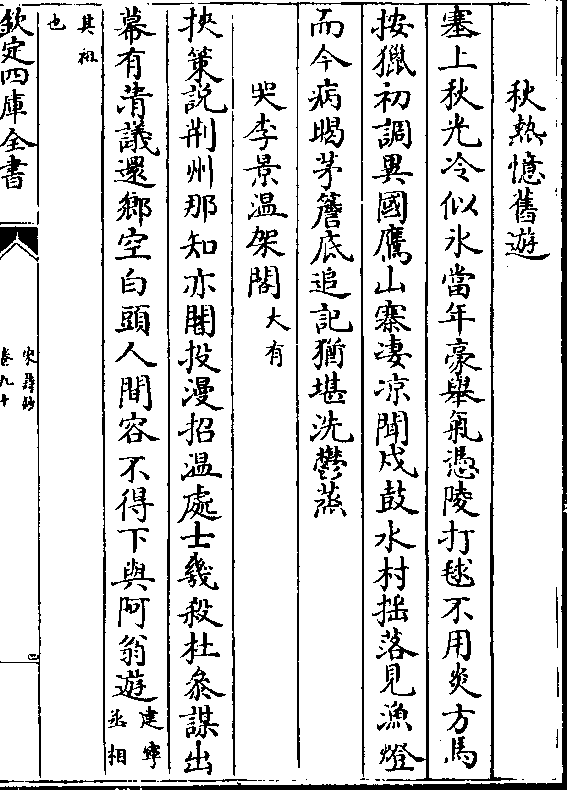 秋熱憶舊遊
塞上秋光冷似氷當年豪舉氣憑陵打毬不用炎方馬
按獵初調異國鷹山寨凄凉聞戍鼓水村揺落見漁燈
而今病暍茅簷底追記猶堪洗鬱蒸
哭李景温架閣大有
挟策説荆州那知亦闇投漫招温處士幾殺杜叅謀出
幕有清議還鄉空白頭人間容不得下與阿翁遊建寧丞相
其祖也
欽定四庫全書
宋詩鈔
卷九十
四